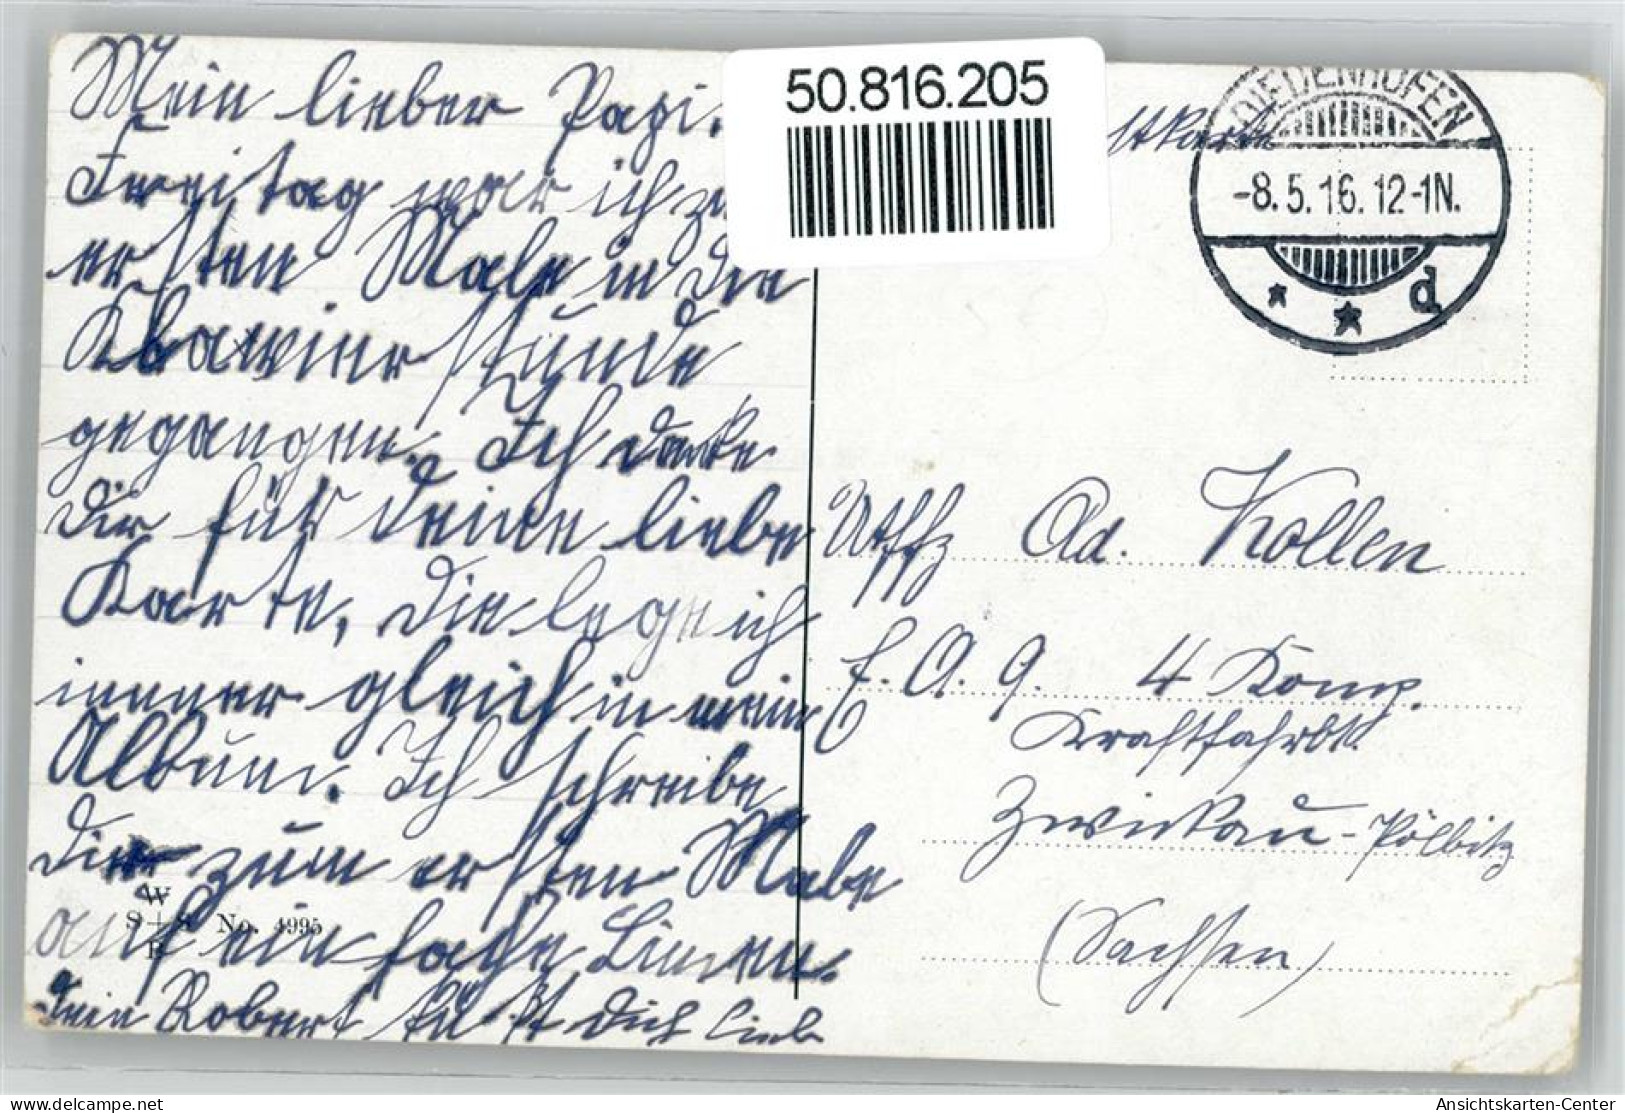 Mein lieber Papi.
Freitag war ich zu
ersten Male in die
Klawierstunde
gegangen. Ich danke
Dir für deine liebe
Karte, die lege ich
immer gleich in mein
Album. Ich schreibe
Dir zum ersten Male
auf einfache Linien.
Dein Robert küßt dich lieb
W
S+S No. 4995
B
50.816.205
DIEDENHOFEN
-8.5.16.12-1N.
* * d
Utffz Ad. Kollen
E. A. 9. 4 Komp.
Kraftfahrbtl.
Zwickau-Pölbitz
(Sachsen)
Ansichtskarten-Center
delcampe.net